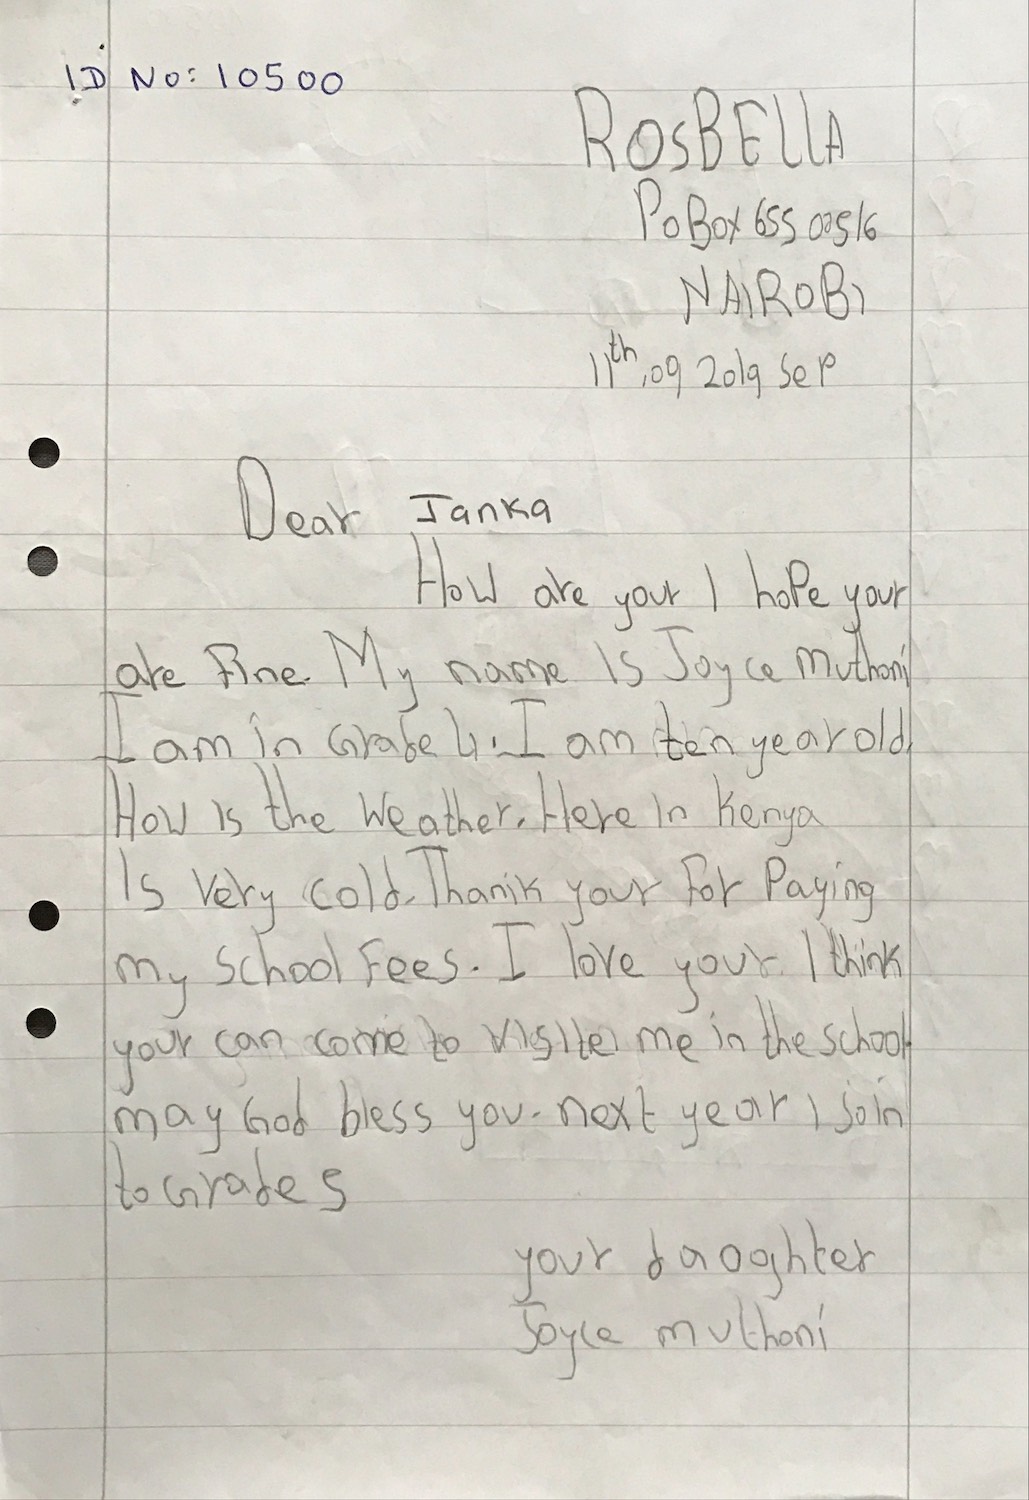 ID No: 10500
ROSBELLA
PoBox 655 00516
NAIROBI
11th,09 2019 Sep
Dear Janka
How are your I hope your
are Fine. My name Is Joyce Muthoni
I am in Grade 4. I am ten year old.
How Is the Weather. Here In Kenya
Is Very cold. Thanik your For Paying
my School Fees. I love your. I think
your can come to visite me in the school
may God bless you. next year I join
to Grade 5
your daoghter
Joyce muthoni